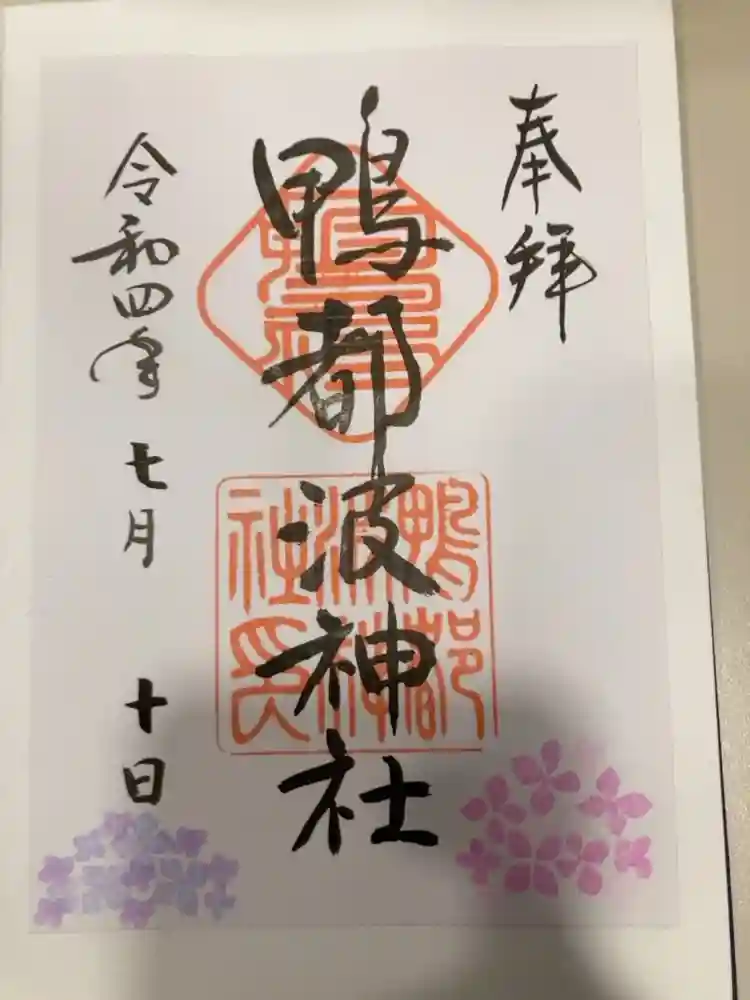 奉拝
鴨都波神社
鴨都波神社印
令和四年七月十日